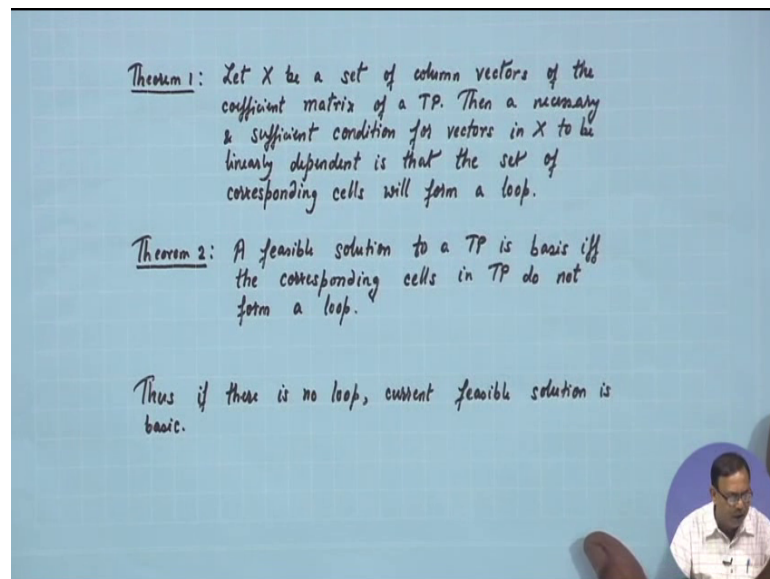 Theorem 1: Let X be a set of column vectors of the
coefficient matrix of a TP. Then a necessary
& sufficient condition for vectors in X to be
linearly dependent is that the set of
corresponding cells will form a loop.
Theorem 2: A feasible solution to a TP is basis iff
the corresponding cells in TP do not
form a loop.
Thus if there is no loop, current feasible solution is
basic.